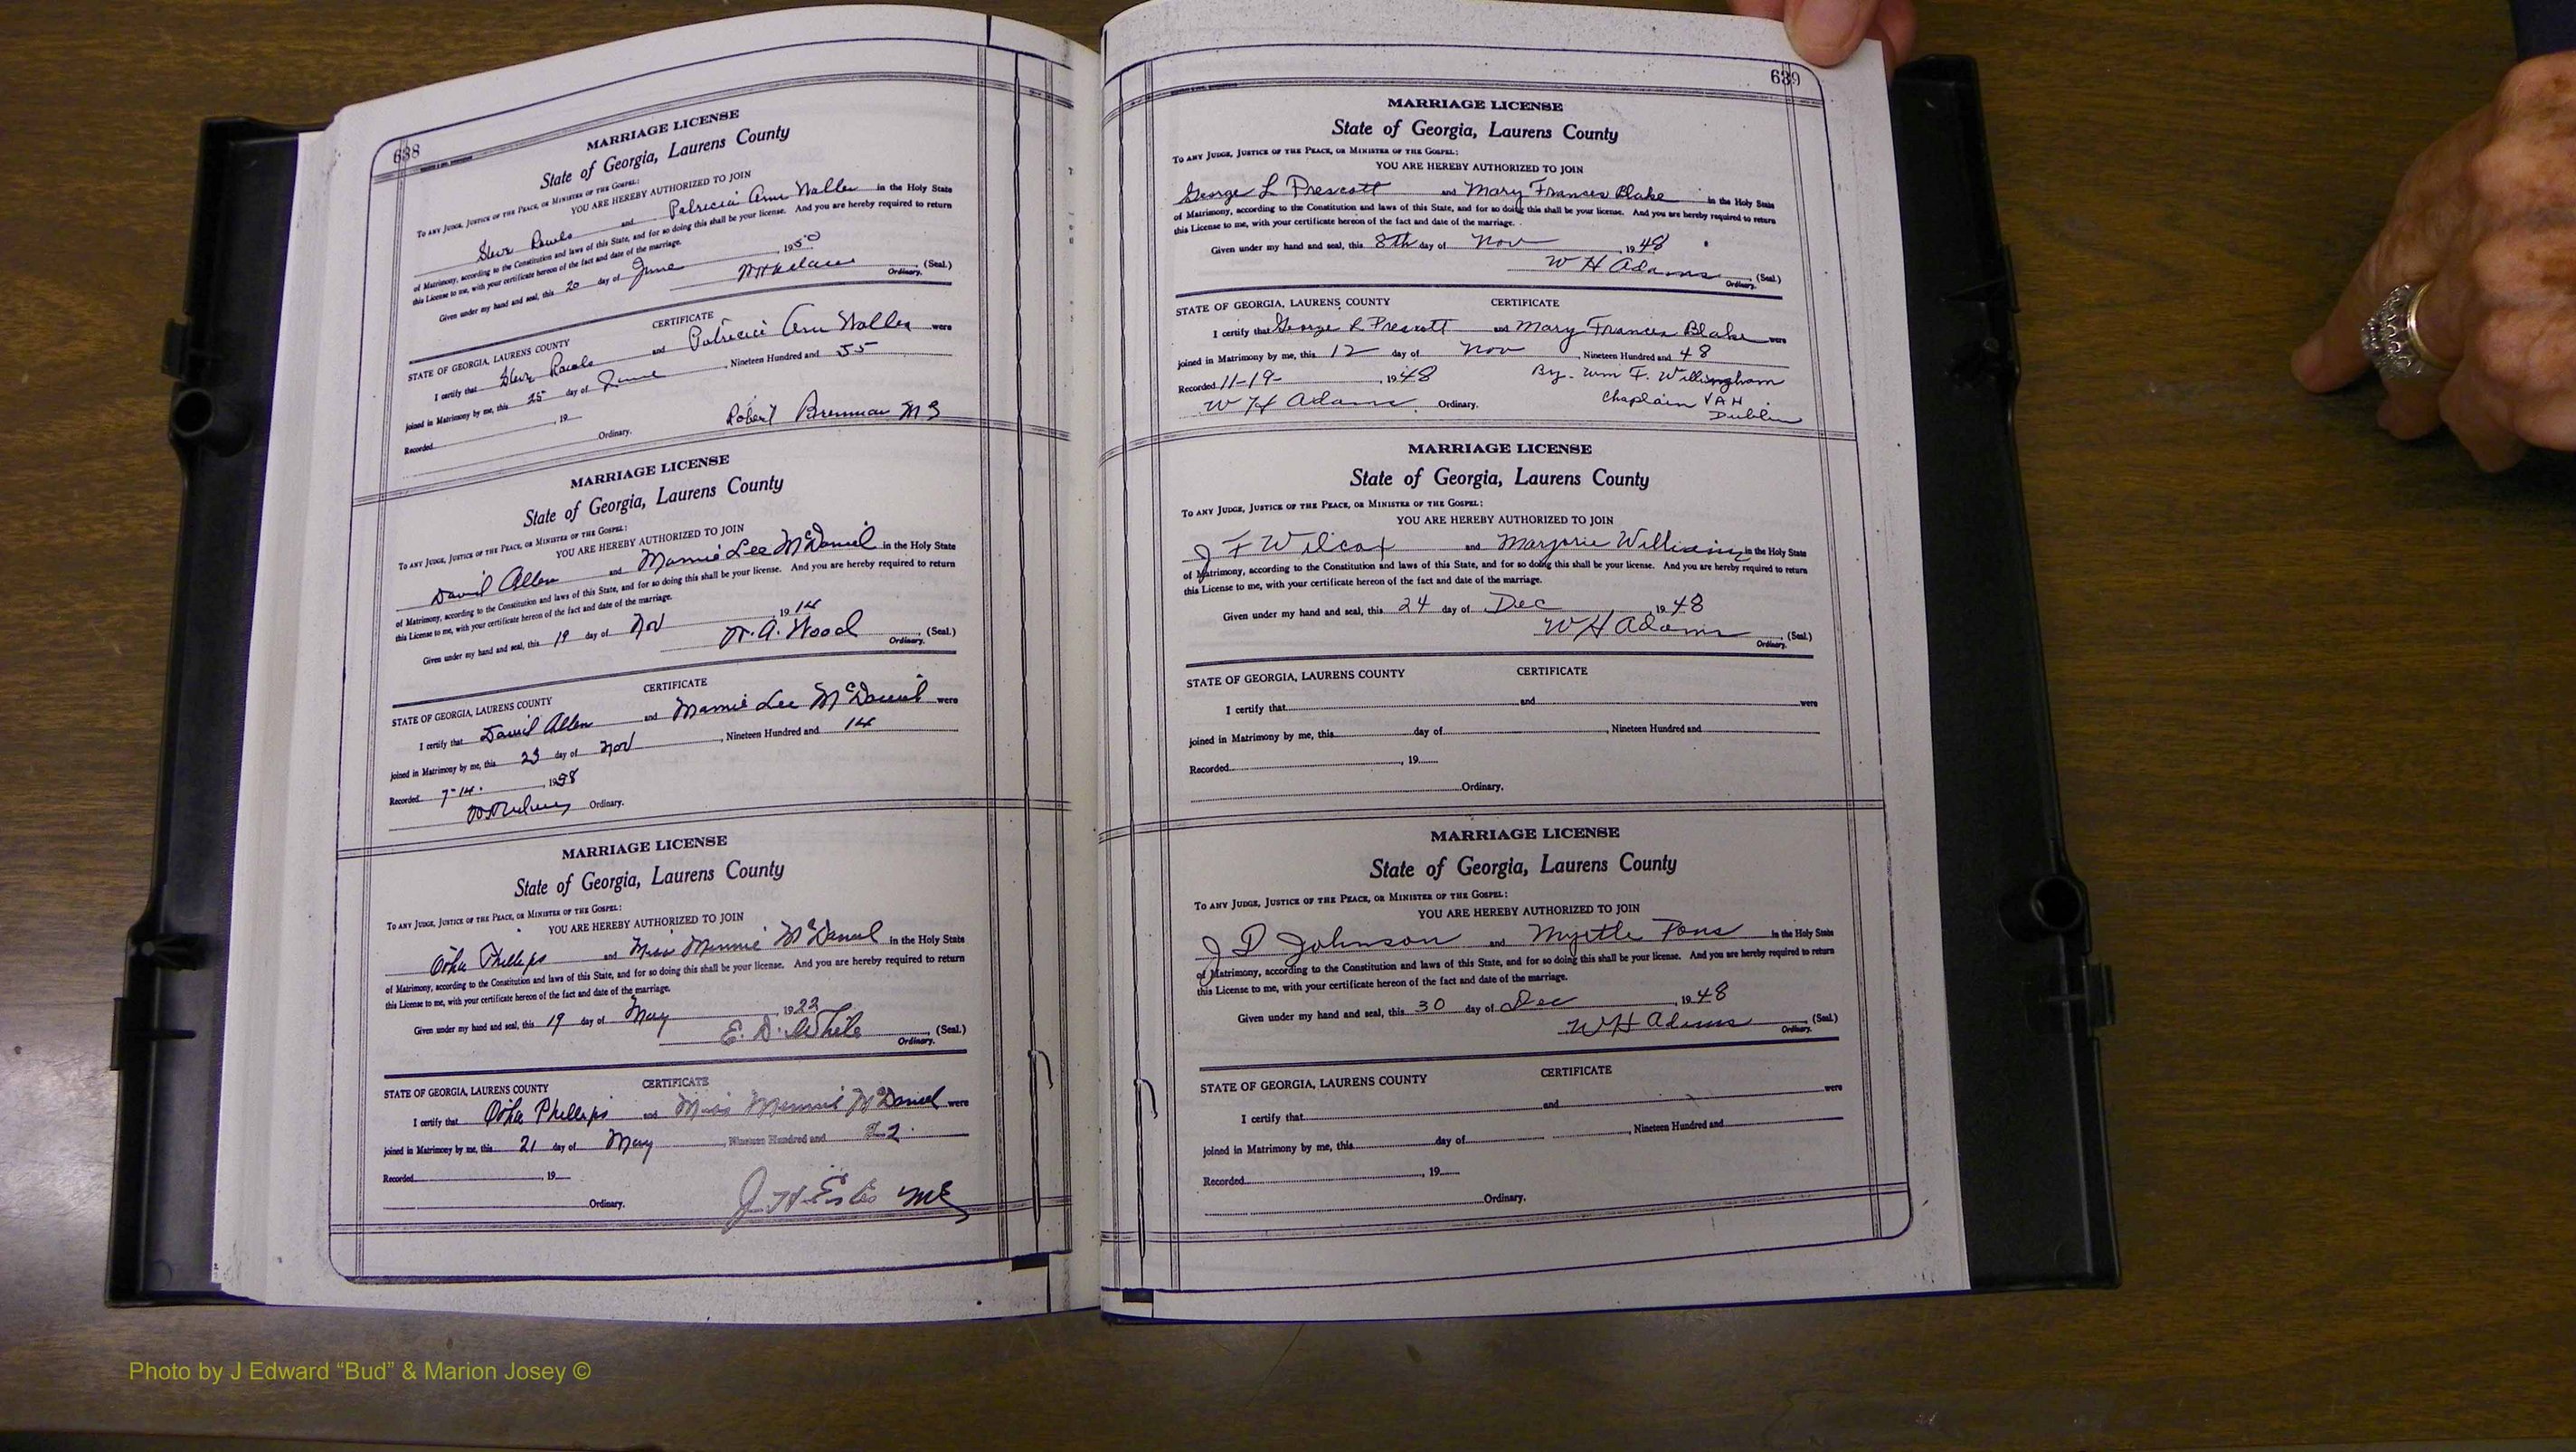 638
MARRIAGE LICENSE
State of Georgia, Laurens County
TO ANY JUDGE, JUSTICE OF THE PEACE, OR MINISTER OF THE GOSPEL:
YOU ARE HEREBY AUTHORIZED TO JOIN
and Patricia Ann in the Holy State
of Matrimony, according to the Constitution and laws of this State, and for so doing this shall be your license. And you are hereby required to return
this License to me, with your certificate hereon of the fact and date of the marriage.
Given under my hand and seal, this 20 day of June, 1950
(Seal.)
Ordinary.
CERTIFICATE
STATE OF GEORGIA, LAURENS COUNTY
I certify that and Patricia Ann were
joined in Matrimony by me, this 25 day of June, Nineteen Hundred and 55
Recorded, 19
Ordinary.
Robert
MARRIAGE LICENSE
State of Georgia, Laurens County
TO ANY JUDGE, JUSTICE OF THE PEACE, OR MINISTER OF THE GOSPEL:
YOU ARE HEREBY AUTHORIZED TO JOIN
David Allen and Mamie Lee McDaniel in the Holy State
of Matrimony, according to the Constitution and laws of this State, and for so doing this shall be your license. And you are hereby required to return
this License to me, with your certificate hereon of the fact and date of the marriage.
Given under my hand and seal, this 19 day of Nov, 1914
A. Wood (Seal.)
Ordinary.
CERTIFICATE
STATE OF GEORGIA, LAURENS COUNTY
I certify that David Allen and Mamie Lee McDaniel were
joined in Matrimony by me, this 23 day of Nov, Nineteen Hundred and 14
Recorded 7-14-, 19
Ordinary.
MARRIAGE LICENSE
State of Georgia, Laurens County
TO ANY JUDGE, JUSTICE OF THE PEACE, OR MINISTER OF THE GOSPEL:
YOU ARE HEREBY AUTHORIZED TO JOIN
Phillips and Miss Minnie McDaniel in the Holy State
of Matrimony, according to the Constitution and laws of this State, and for so doing this shall be your license. And you are hereby required to return
this License to me, with your certificate hereon of the fact and date of the marriage.
Given under my hand and seal, this 19 day of May, 1922
E. D. White (Seal.)
Ordinary.
CERTIFICATE
STATE OF GEORGIA, LAURENS COUNTY
I certify that Phillips and Miss Minnie McDaniel were
joined in Matrimony by me, this 21 day of May, Nineteen Hundred and 22
Recorded, 19
Ordinary.
639
MARRIAGE LICENSE
State of Georgia, Laurens County
TO ANY JUDGE, JUSTICE OF THE PEACE, OR MINISTER OF THE GOSPEL:
YOU ARE HEREBY AUTHORIZED TO JOIN
George L Prescott and Mary Frances Blake in the Holy State
of Matrimony, according to the Constitution and laws of this State, and for so doing this shall be your license. And you are hereby required to return
this License to me, with your certificate hereon of the fact and date of the marriage.
Given under my hand and seal, this 8th day of Nov, 1948
W H Adams (Seal.)
Ordinary.
STATE OF GEORGIA, LAURENS COUNTY CERTIFICATE
I certify that George L Prescott and Mary Frances Blake were
joined in Matrimony by me, this 12 day of Nov, Nineteen Hundred and 48
Recorded 11-19-, 1948 By. Wm F. Willingham
W H Adams Ordinary. Chaplain VAH
Dublin
MARRIAGE LICENSE
State of Georgia, Laurens County
TO ANY JUDGE, JUSTICE OF THE PEACE, OR MINISTER OF THE GOSPEL:
YOU ARE HEREBY AUTHORIZED TO JOIN
J F Wilcox and Marjorie Williams in the Holy State
of Matrimony, according to the Constitution and laws of this State, and for so doing this shall be your license. And you are hereby required to return
this License to me, with your certificate hereon of the fact and date of the marriage.
Given under my hand and seal, this 24 day of Dec, 1948
W H Adams (Seal.)
Ordinary.
STATE OF GEORGIA, LAURENS COUNTY CERTIFICATE
I certify that and were
joined in Matrimony by me, this day of, Nineteen Hundred and
Recorded, 19
Ordinary.
MARRIAGE LICENSE
State of Georgia, Laurens County
TO ANY JUDGE, JUSTICE OF THE PEACE, OR MINISTER OF THE GOSPEL:
YOU ARE HEREBY AUTHORIZED TO JOIN
J D Johnson and Myrtle in the Holy State
of Matrimony, according to the Constitution and laws of this State, and for so doing this shall be your license. And you are hereby required to return
this License to me, with your certificate hereon of the fact and date of the marriage.
Given under my hand and seal, this 30 day of Dec, 1948
W H Adams (Seal.)
Ordinary.
STATE OF GEORGIA, LAURENS COUNTY CERTIFICATE
I certify that and were
joined in Matrimony by me, this day of, Nineteen Hundred and
Recorded, 19
Ordinary.
Photo by J Edward “Bud” & Marion Josey ©